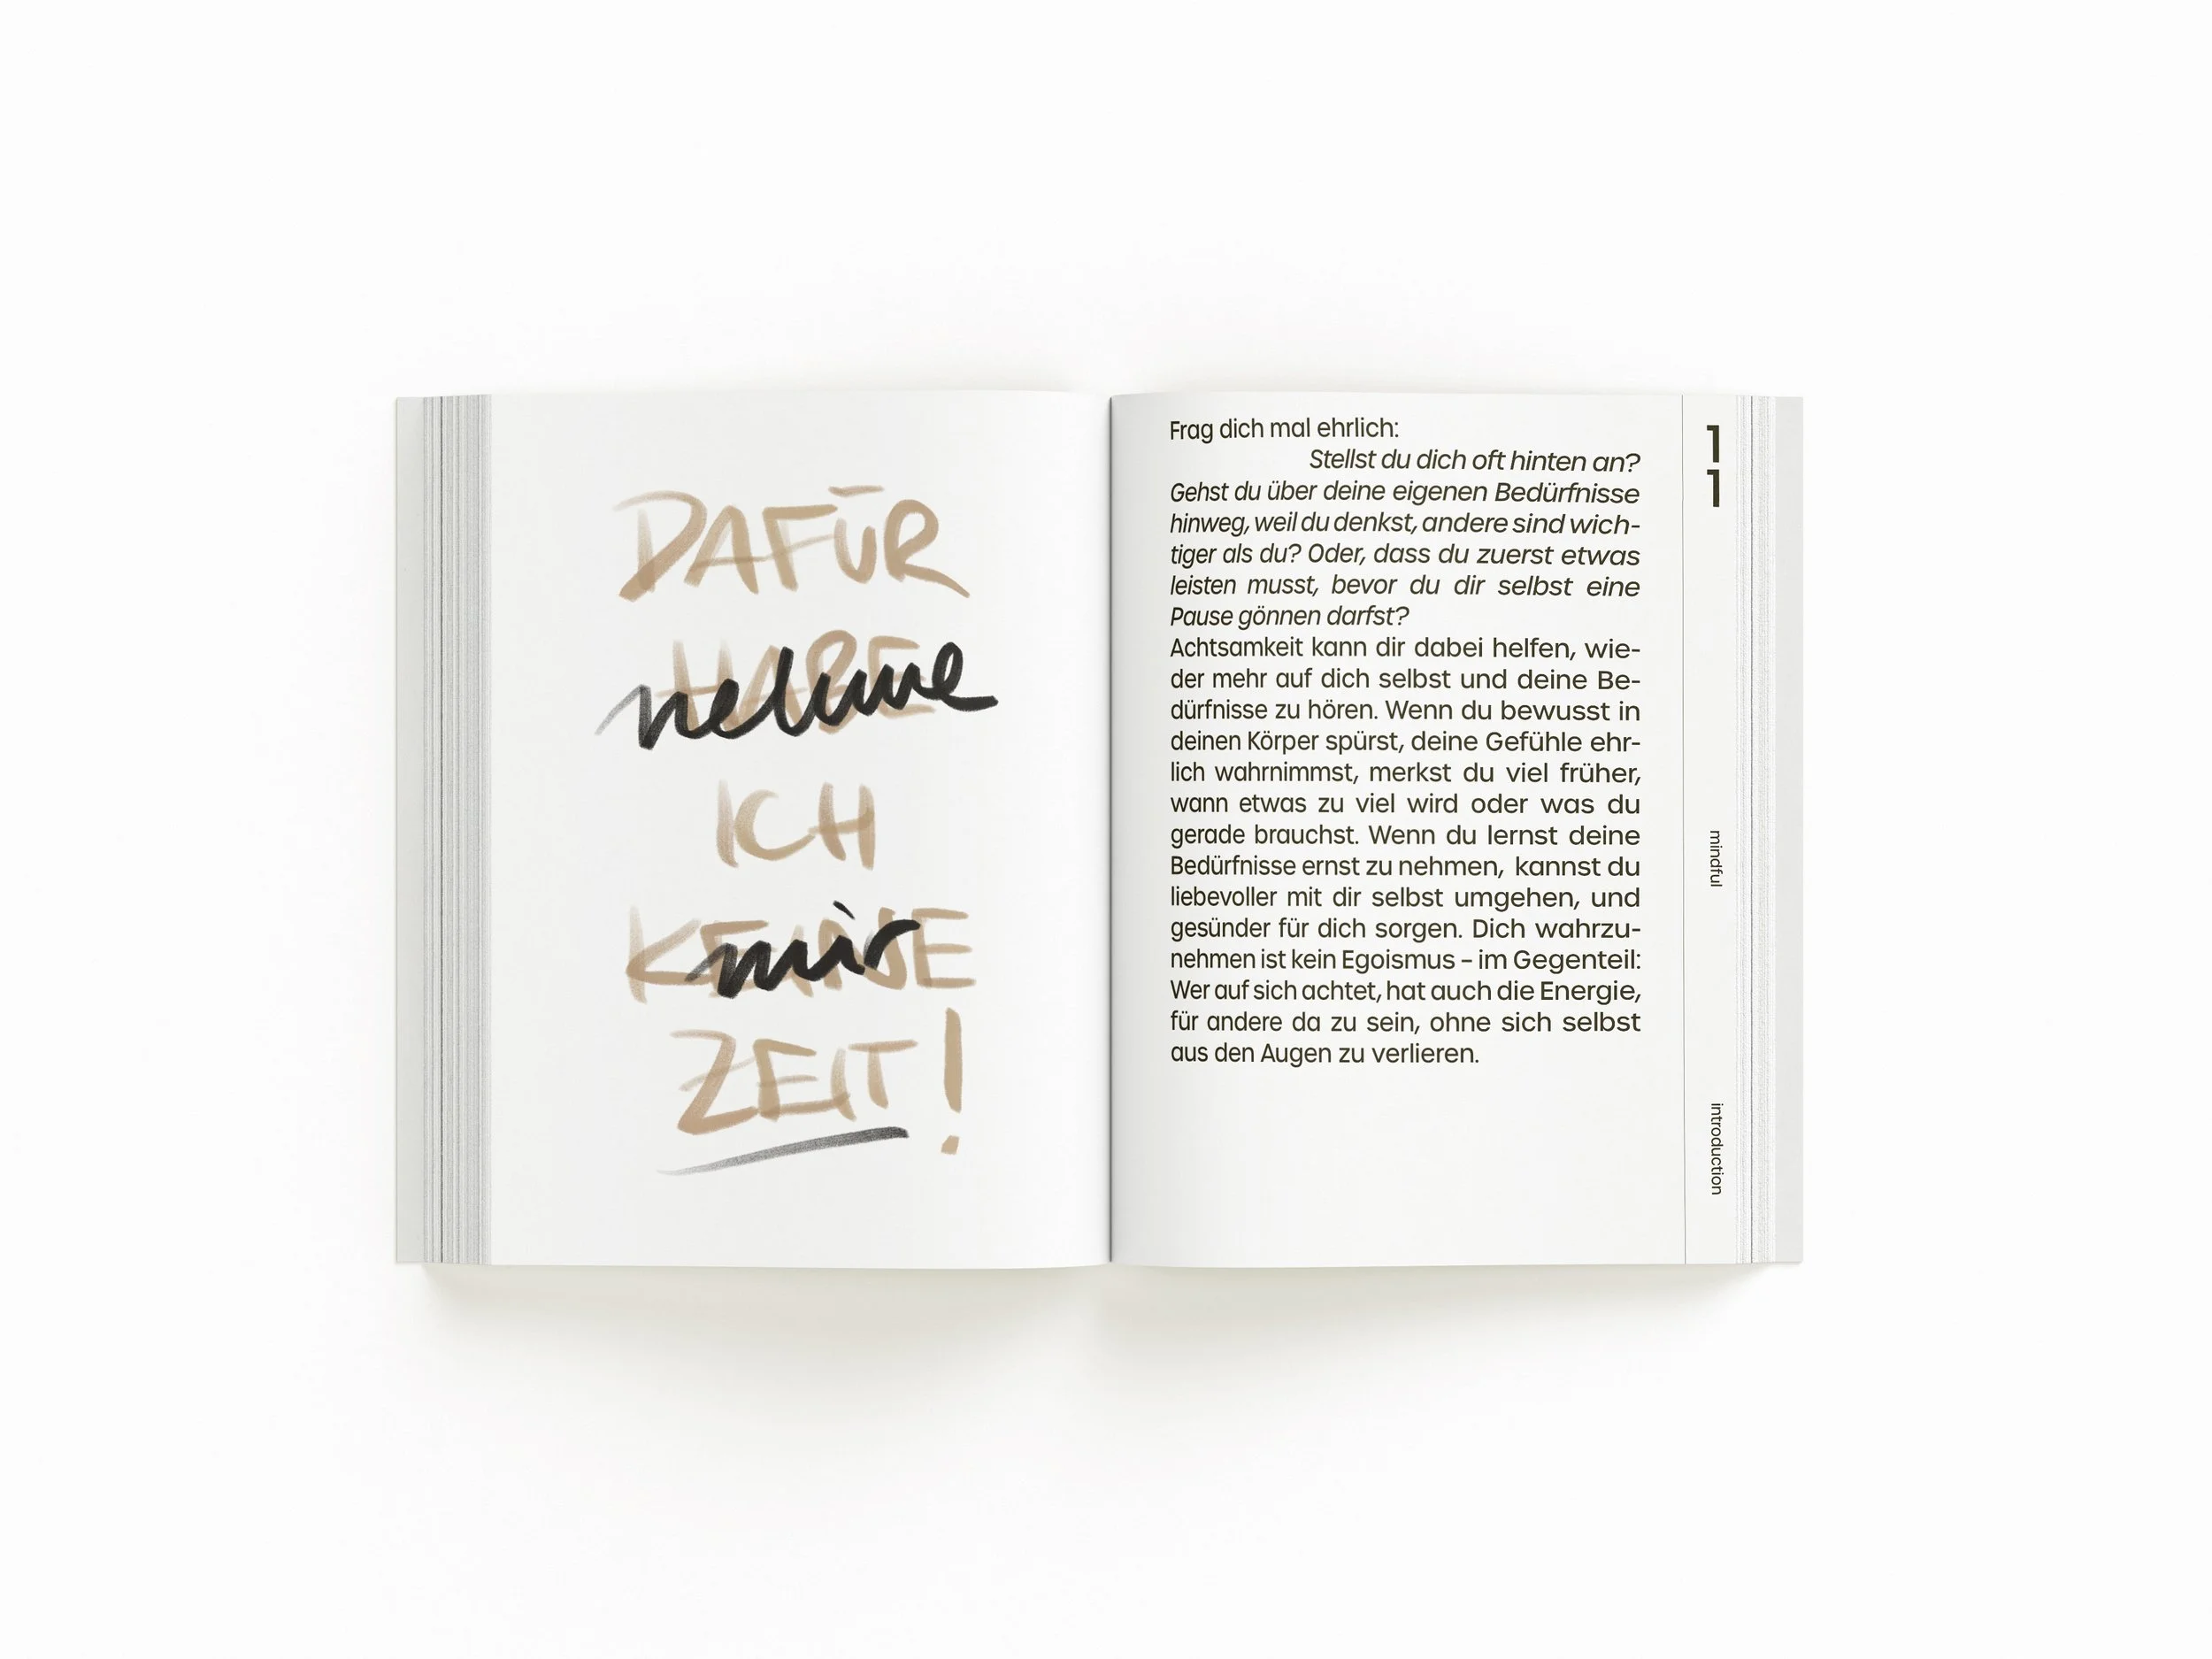 DAFÜR
HABE
nehme
ICH
KEINE
mir
ZEIT!
Frag dich mal ehrlich:
Stellst du dich oft hinten an?
Gehst du über deine eigenen Bedürfnisse
hinweg, weil du denkst, andere sind wich-
tiger als du? Oder, dass du zuerst etwas
leisten musst, bevor du dir selbst eine
Pause gönnen darfst?
Achtsamkeit kann dir dabei helfen, wie-
der mehr auf dich selbst und deine Be-
dürfnisse zu hören. Wenn du bewusst in
deinen Körper spürst, deine Gefühle ehr-
lich wahrnimmst, merkst du viel früher,
wann etwas zu viel wird oder was du
gerade brauchst. Wenn du lernst deine
Bedürfnisse ernst zu nehmen, kannst du
liebevoller mit dir selbst umgehen, und
gesünder für dich sorgen. Dich wahrzu-
nehmen ist kein Egoismus – im Gegenteil:
Wer auf sich achtet, hat auch die Energie,
für andere da zu sein, ohne sich selbst
aus den Augen zu verlieren.
1
1
mindful
introduction